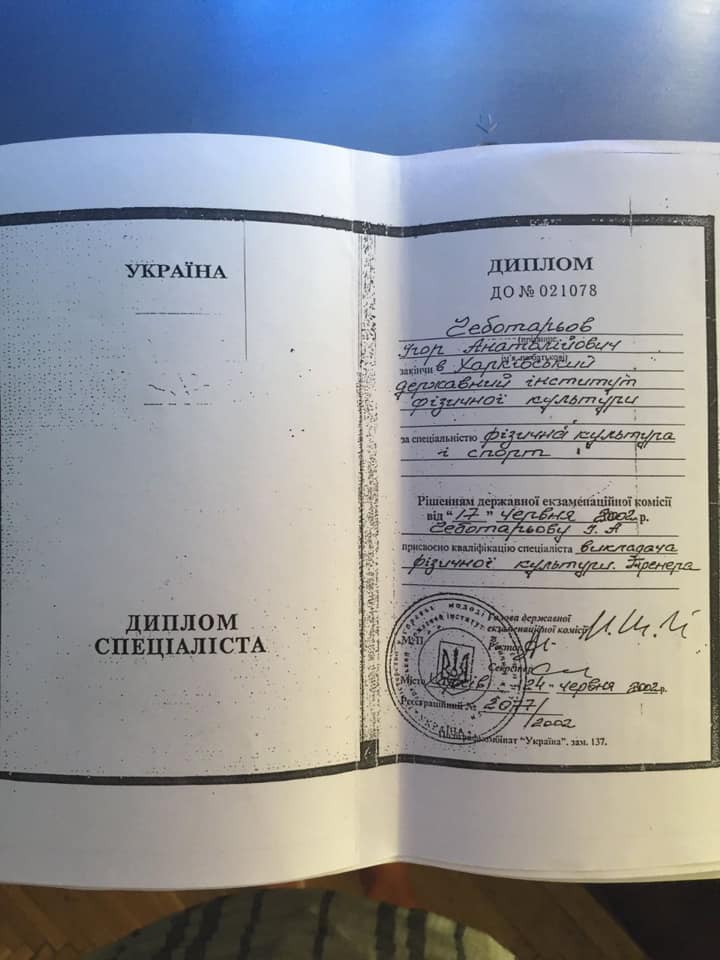 УКРАЇНА
ДИПЛОМ
СПЕЦІАЛІСТА
ДИПЛОМ
ДО № 021078
Чеботарьов
(прізвище,
Ігор Анатолійович
ім'я, по батькові)
закінчив Харківський
державний інститут
фізичної культури
за спеціальністю фізична культура
і спорт
Рішенням державної екзаменаційної комісії
від "17" червня 2002 р.
Чеботарьову І. А
присвоєно кваліфікацію спеціаліста викладача
фізичної культури. Тренера
Голова державної
екзаменаційної комісії
М.П.
Ректор
Секретар
Місто Харків "24" червня 2002 р.
Реєстраційний № 2077/
/2002
УКРАЇНА
Поліграфкомбінат "Україна". зам. 137.